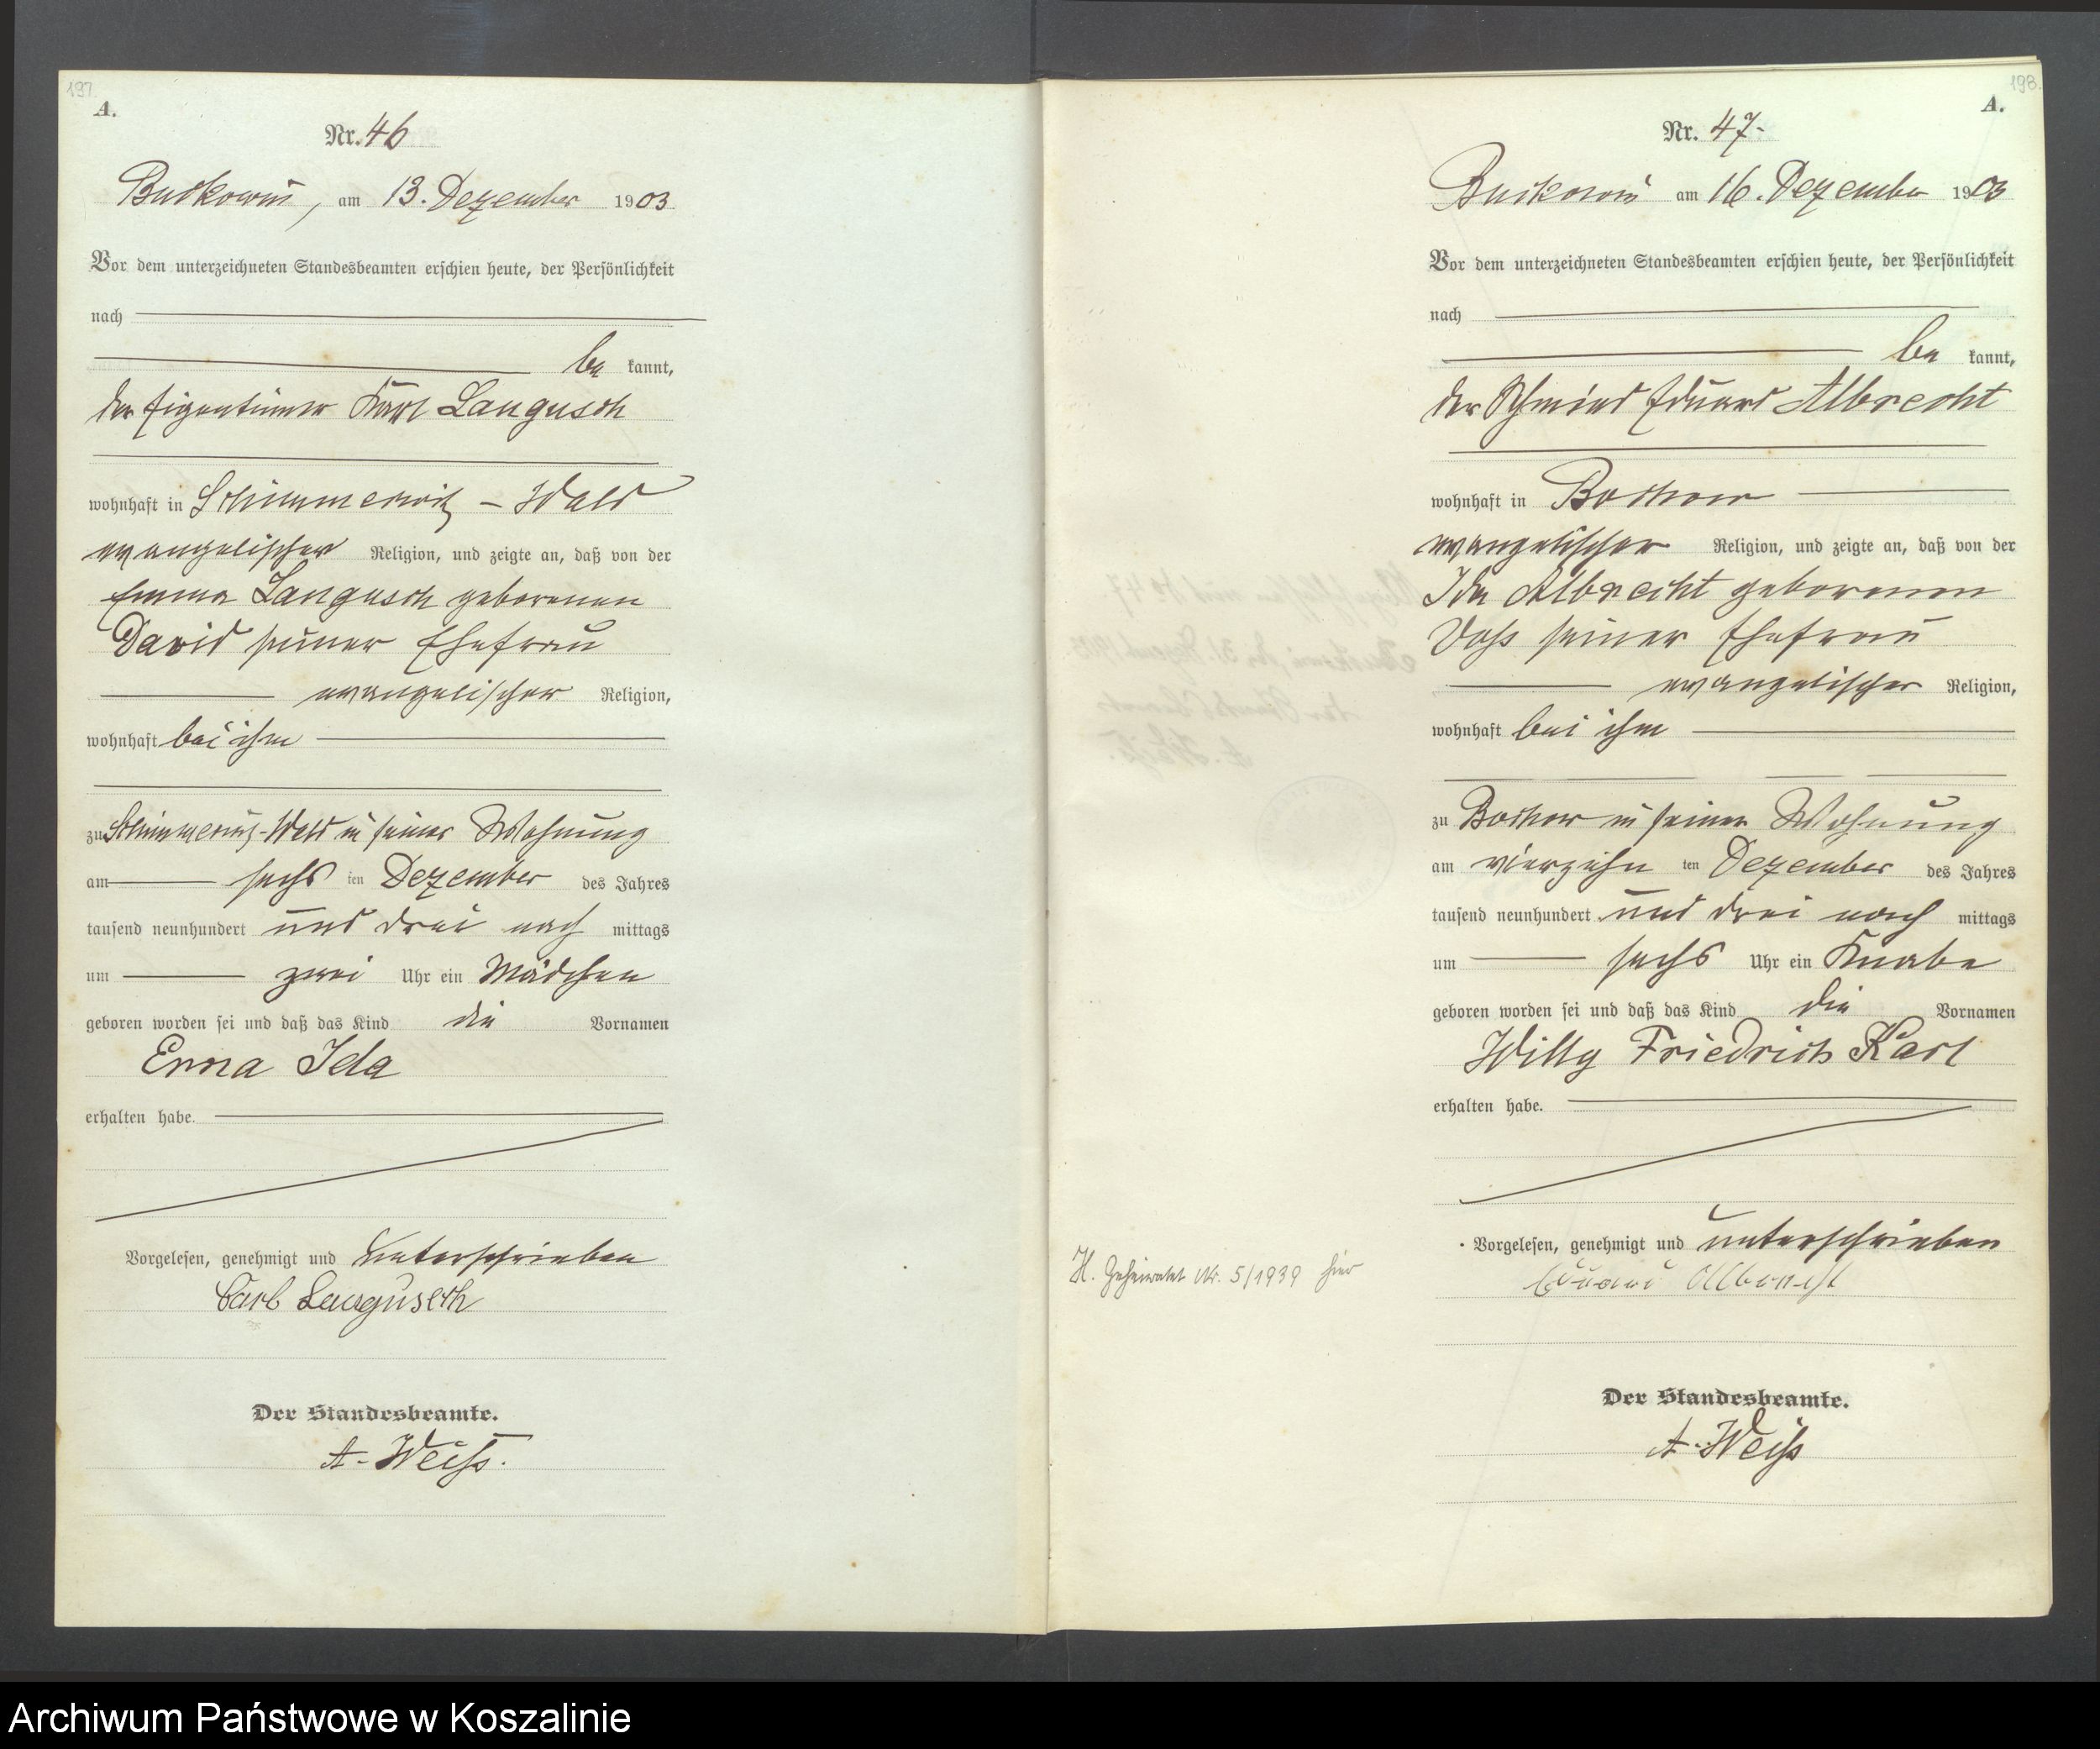 197.
A.
Nr. 46
Buckowin, am 13. Dezember 1903
Vor dem unterzeichneten Standesbeamten erschien heute, der Persönlichkeit
nach
be kannt,
der Eigentümer Karl Langusch
wohnhaft in Schimmerwitz - Wald
evangelischer Religion, und zeigte an, daß von der
Emma Langusch geborenen
David seiner Ehefrau
evangelischer Religion,
wohnhaft bei ihm
zu Schimmerwitz-Wald in seiner Wohnung
am sechs ten Dezember des Jahres
tausend neunhundert und drei nach mittags
um zwei Uhr ein Mädchen
geboren worden sei und daß das Kind die Vornamen
Erna Ida
erhalten habe.
Vorgelesen, genehmigt und unterschrieben
Carl Langusch
Der Standesbeamte.
A. Weiß.
198.
A.
Nr. 47.
Buckowin am 16. Dezember 1903
Vor dem unterzeichneten Standesbeamten erschien heute, der Persönlichkeit
nach
be kannt,
der Schmied Eduard Albrecht
wohnhaft in Bochow
evangelischer Religion, und zeigte an, daß von der
Ida Albrecht geborenen
Voß seiner Ehefrau
evangelischer Religion,
wohnhaft bei ihm
zu Bochow in seiner Wohnung
am vierzehn ten Dezember des Jahres
tausend neunhundert und drei nach mittags
um sechs Uhr ein Knabe
geboren worden sei und daß das Kind die Vornamen
Willy Friedrich Karl
erhalten habe.
Vorgelesen, genehmigt und unterschrieben
Eduard Albrecht
H. Geheiratet Nr. 5/1939 hier
Der Standesbeamte.
A. Weiß
Archiwum Państwowe w Koszalinie